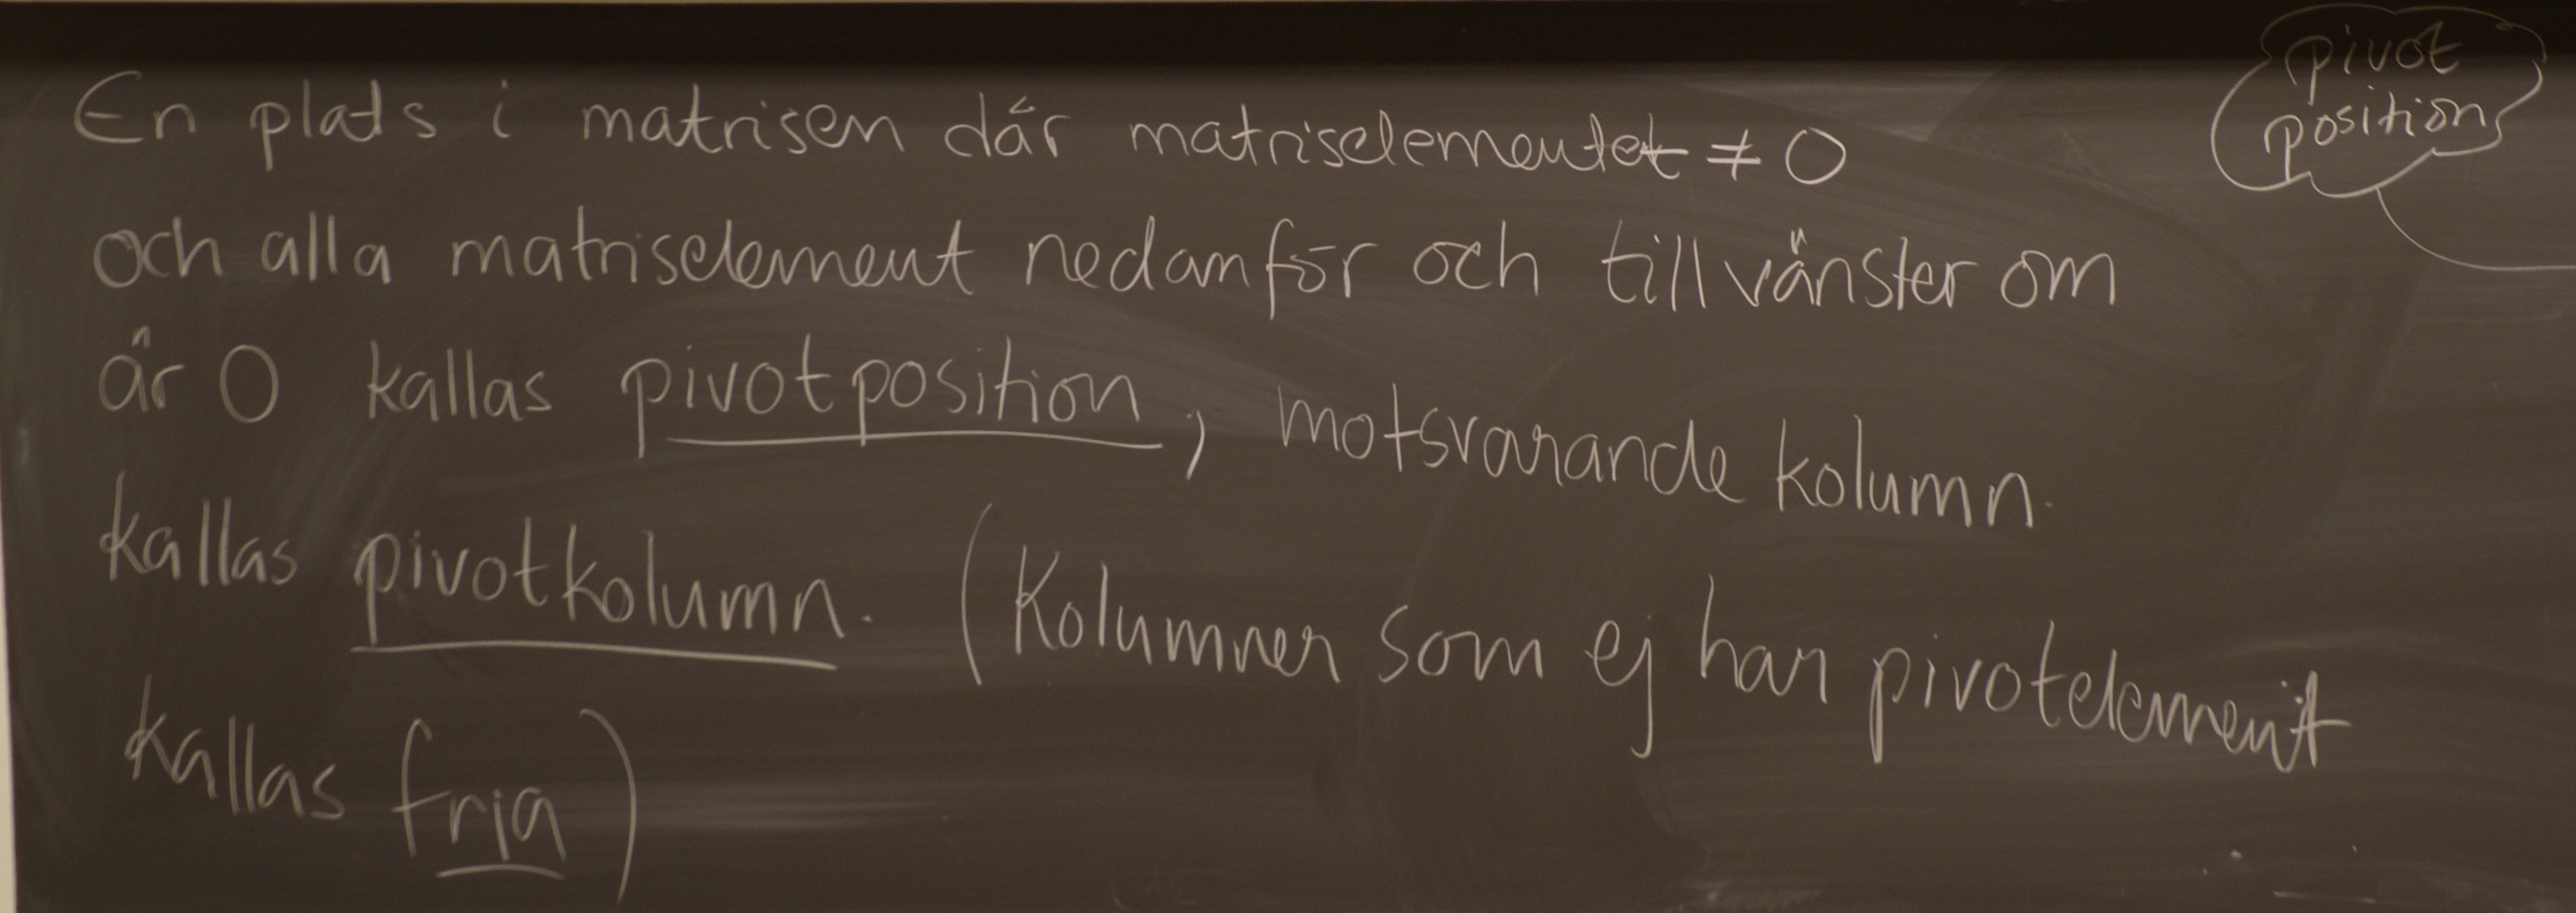 pivot
position
En plats i matrisen där matriselementet ≠ 0
och alla matriselement nedanför och till vänster om
är 0 kallas pivotposition, motsvarande kolumn.
kallas pivotkolumn. (Kolumner som ej har pivotelement
kallas fria)